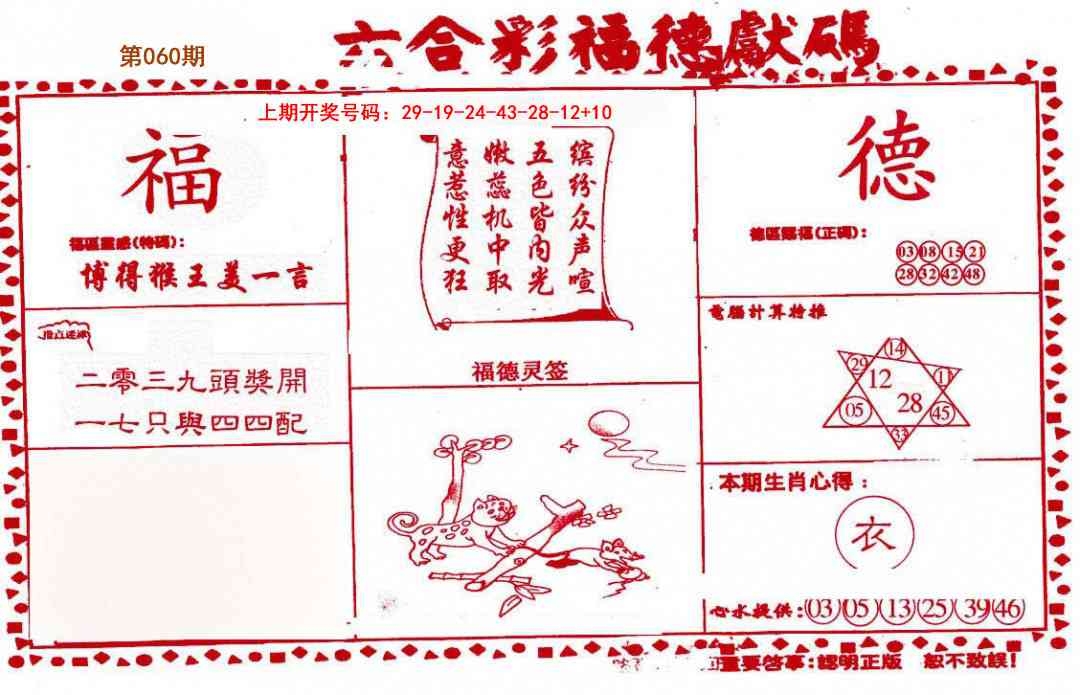 第060期
六合彩福德獻碼
上期开奖号码：29-19-24-43-28-12+10
福
福區靈感(特碼)：
博得猴王美一言
二零三九頭獎開
一七只與四四配
缤纷众声喧
五色皆内光
嫩蕊机中取
意惹性更狂
福德灵签
德
德區賜福(正碼)：
03 08 15 21
28 32 42 48
電腦計算特推
14
29 12 11
05 28 45
33
本期生肖心得：
衣
心水提供：03 05 13 25 39 46
重要啓事：認明正版 恕不致誤！